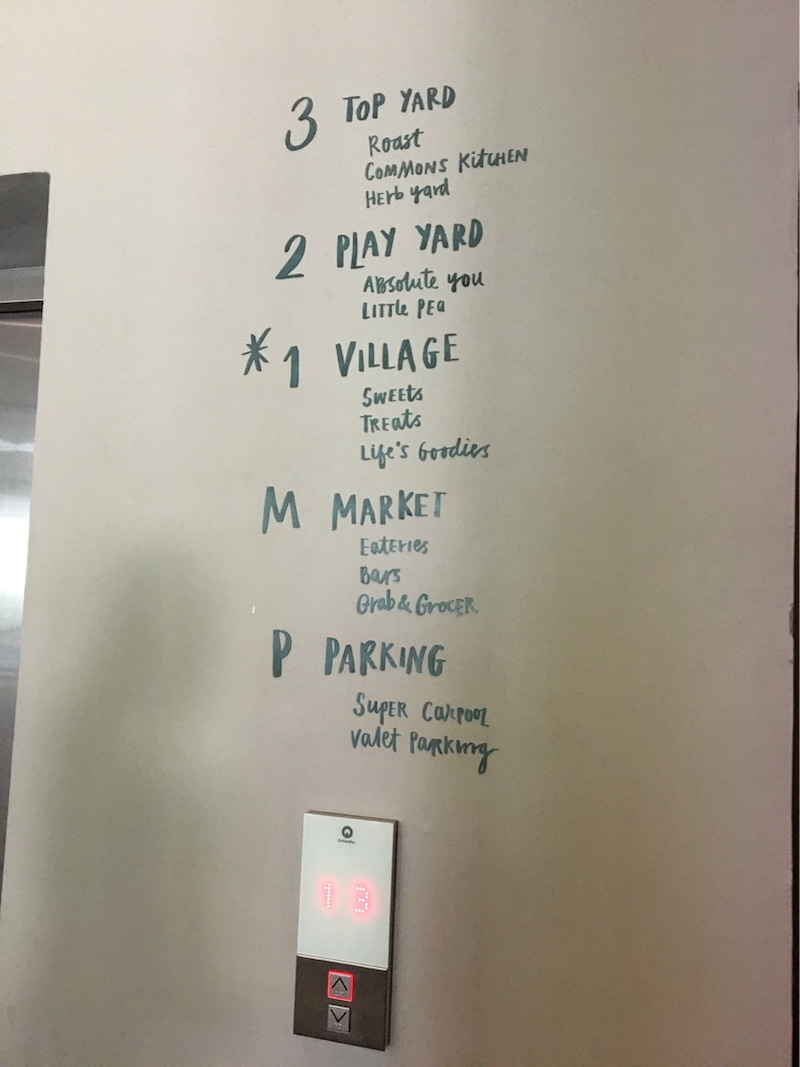 3 TOP YARD
Roast
COMMONS KITCHEN
Herb yard
2 PLAY YARD
Absolute you
Little Pea
* 1 VILLAGE
Sweets
Treats
Life's Goodies
M MARKET
Eateries
Bars
Grab & Grocer
P PARKING
Super Carpool
Valet Parking
Schindler
1 3